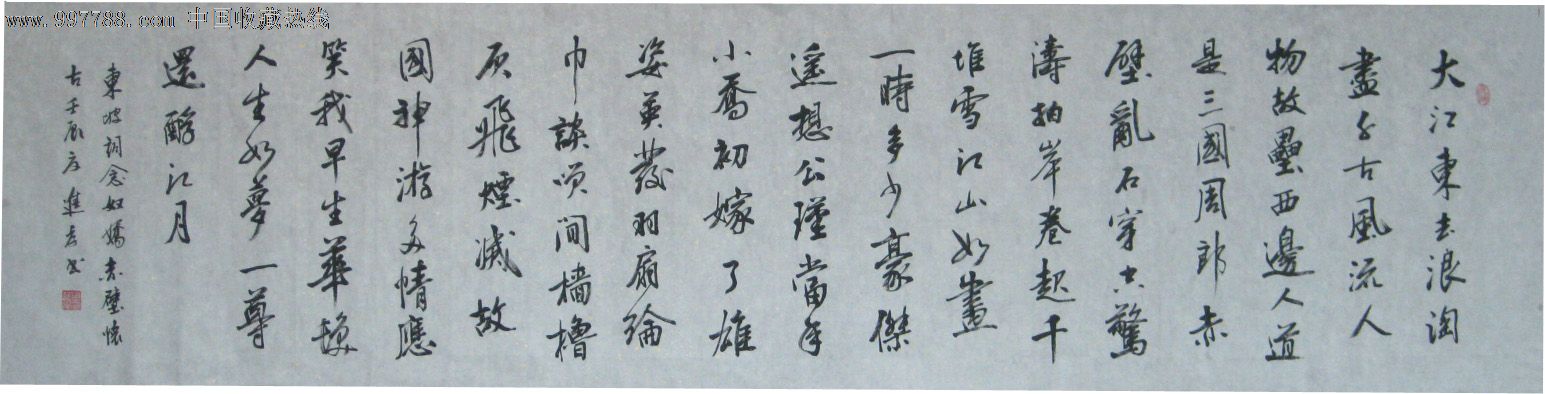 www.997788.com 中国收藏热线
大江東去浪淘
盡千古風流人
物故壘西邊人道
是三國周郎赤
壁亂石穿空驚
濤拍岸卷起千
堆雪江山如畫
一時多少豪傑
遙想公瑾當年
小喬初嫁了雄
姿英發羽扇綸
巾談笑間檣櫓
灰飛煙滅故
國神游多情應
笑我早生華髮
人生如夢一尊
還酹江月
東坡詞念奴嬌赤壁懷
古壬辰年進春書